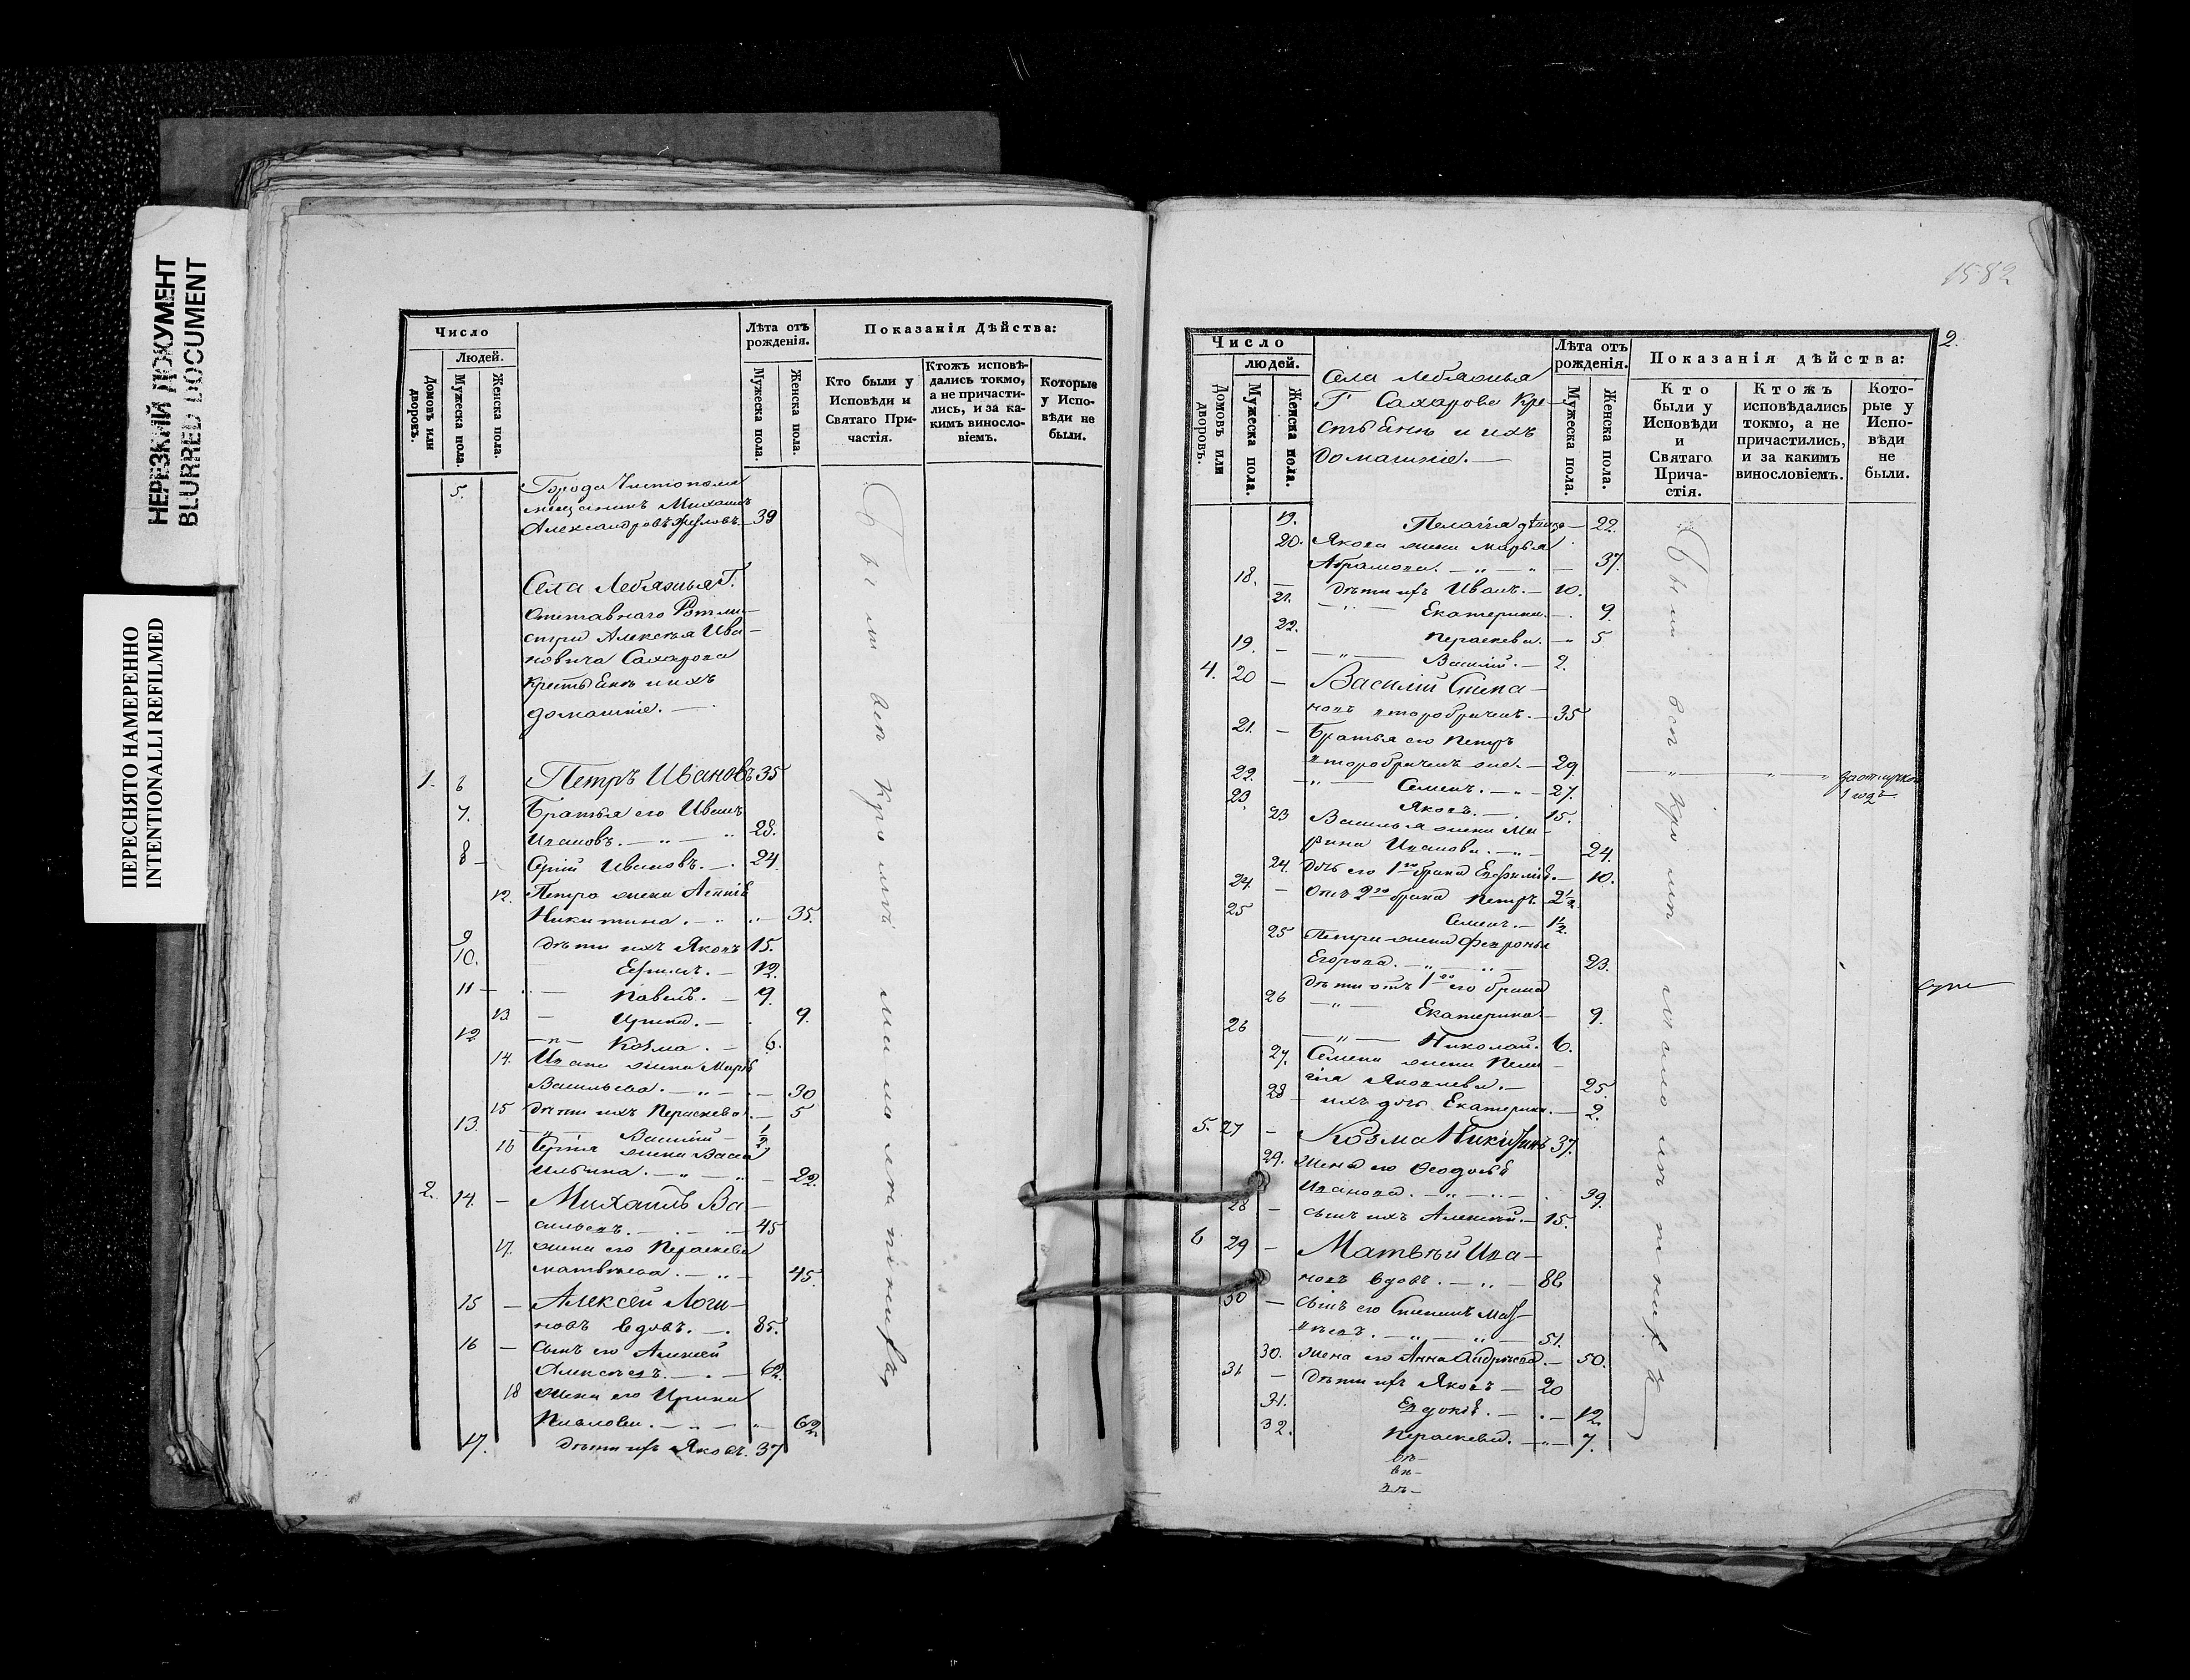 НЕРЕЗКІЙ ДОКУМЕНТ
BLURRED DOCUMENT
ПЕРЕСНЯТО НАМЕРЕННО
INTENTIONALLI REFILMED
Число
Людей.
Домовъ или дворовъ.
Мужеска пола.
Женска пола.
Лѣта отъ рожденія.
Мужеска пола.
Женска пола.
Показанія Дѣйства:
Кто были у
Исповѣди и
Святаго При-
частія.
Ктожъ исповѣ-
дались токмо,
а не причасти-
лись, и за ка-
кимъ винословіемъ.
Которые
у Испо-
вѣди не
были.
5. Города Чистополя
мещанинъ Михаилъ
Александровъ 39
Села Лебяжья Г.
Отставнаго Ротми-
стра Алексѣя Ива-
новича Сахарова
крестьяне и ихъ
домашніе.
1. 6 Петръ Ивановъ 35
7. Братья его Иванъ
Ивановъ. 28.
8 Сергій Ивановъ. 24
12. Петра жена
Никитина. 35.
9 Дѣти ихъ Яковъ 15.
10. Ефимъ. 12.
11 Павелъ. 9.
13 Ирина. 9.
12 Козма. 6.
14. Ивана жена Марія
Васильева. 30
15 Дѣти ихъ Параскева. 5
13. Василій 1/2
16 Сергія жена Васса
Ильина. 22.
2. 14. Михаилъ Ва-
сильевъ. 45
17. Жена его Параскева
Матвѣева. 45.
15 Алексѣй Логи-
новъ вдовъ. 85.
16 Сынъ его Алексѣй
Алексѣевъ. 62.
18 Жена его Ирина
Павлова. 62.
17. Дѣти ихъ Яковъ. 37
1582
2.
Число
людей.
Домовъ или дворовъ.
Мужеска пола.
Женска пола.
Села Лебяжья
Г. Сахарова Кре-
стьяне и ихъ
домашніе.
Лѣта отъ рожденія.
Мужеска пола.
Женска пола.
Показанія дѣйства:
Кто
были у
Исповѣди
и
Святаго
Прича-
стія.
Ктожъ
исповѣдались
токмо, а не
причастились,
и за какимъ
винословіемъ.
Кото-
рые у
Испо-
вѣди
не
были.
19. Пелагія 22.
20. Якова жена Марья
Абрамова. 37.
18. Дѣти ихъ Иванъ. 10.
21. Екатерина. 9.
22. Параскева. 5
19. Василій. 2.
4. 20 Василій Степа-
новъ второбраченъ. 35
21. Братья его Петръ
второбраченъ же. 29.
22. Семенъ. 27. за отлучкою
1 годъ
23. Яковъ. 15.
23 Василья жена Ма-
рина Иванова. 24.
24. Дочь его 1го брака 10.
24. Отъ 2го брака Петръ. 2 1/2
25 Семенъ. 1 1/2
25 Петра жена
Егорова. 23.
Дѣти отъ 1го его брака
26 Екатерина 9.
26 Николай. 6.
27. Семена жена Пела-
гія Яковлева. 25.
28 ихъ дочь Екатерина. 2.
5. 27 Козма Никитинъ 37.
29. Жена его
Иванова. 39.
28 сынъ ихъ Алексѣй. 15.
6 29 Матвѣй Ива-
новъ вдовъ. 86
30 Сынъ его Степанъ Мат-
вѣевъ. 51.
30. Жена его Анна Андреева. 50.
31 Дѣти ихъ Яковъ 20
31. Евдокія. 12.
32. Параскева. 7.